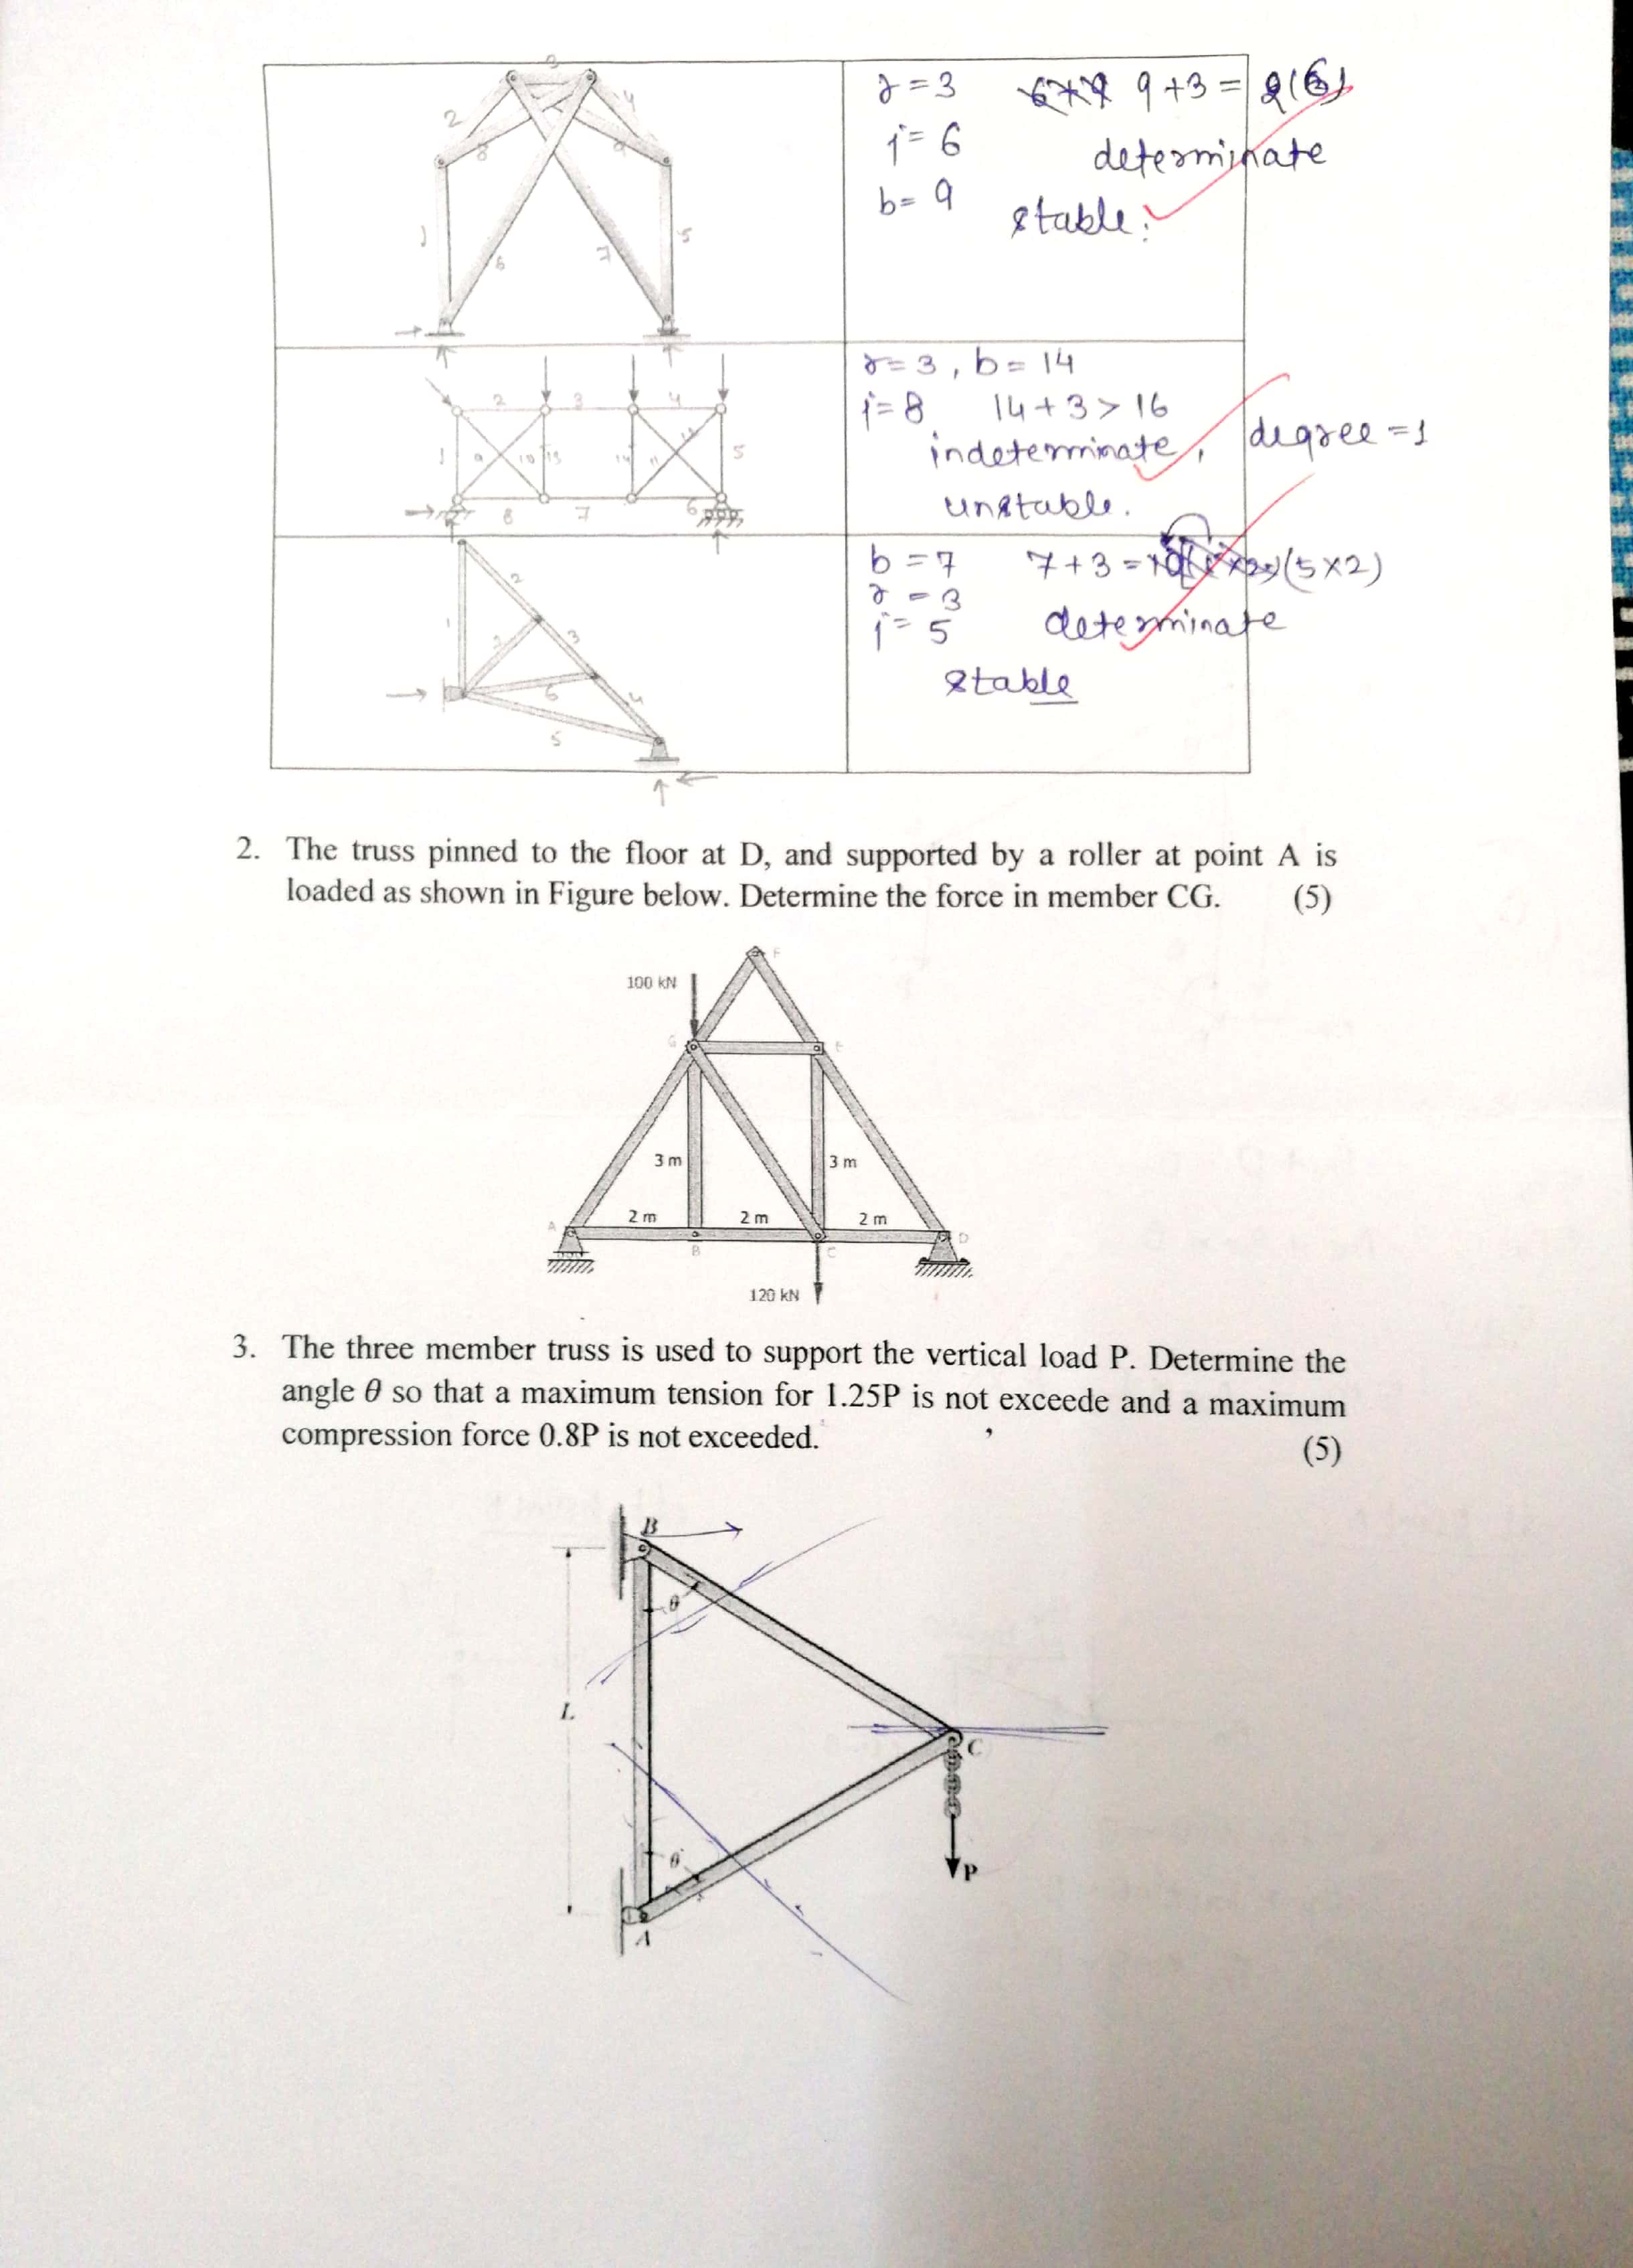 3
2
4
8
9
1
5
6
7
r = 3 9 + 3 = 2(6)
j = 6
determinate
b = 9
stable.
r = 3 , b = 14
j = 8 14 + 3 > 16
indeterminate, degree = 1
unstable.
2 3 4
1 9 10 13 14 11 12 5
8 7 6
b = 7 7 + 3 = 10 (5×2)
r = 3
j = 5 determinate
stable
2
1
3
6
4
5
2. The truss pinned to the floor at D, and supported by a roller at point A is
loaded as shown in Figure below. Determine the force in member CG. (5)
F
100 kN
G E
3 m 3 m
2 m 2 m 2 m
A B C D
120 kN
3. The three member truss is used to support the vertical load P. Determine the
angle θ so that a maximum tension for 1.25P is not exceede and a maximum
compression force 0.8P is not exceeded.
(5)
B
θ
L
C
θ
P
A